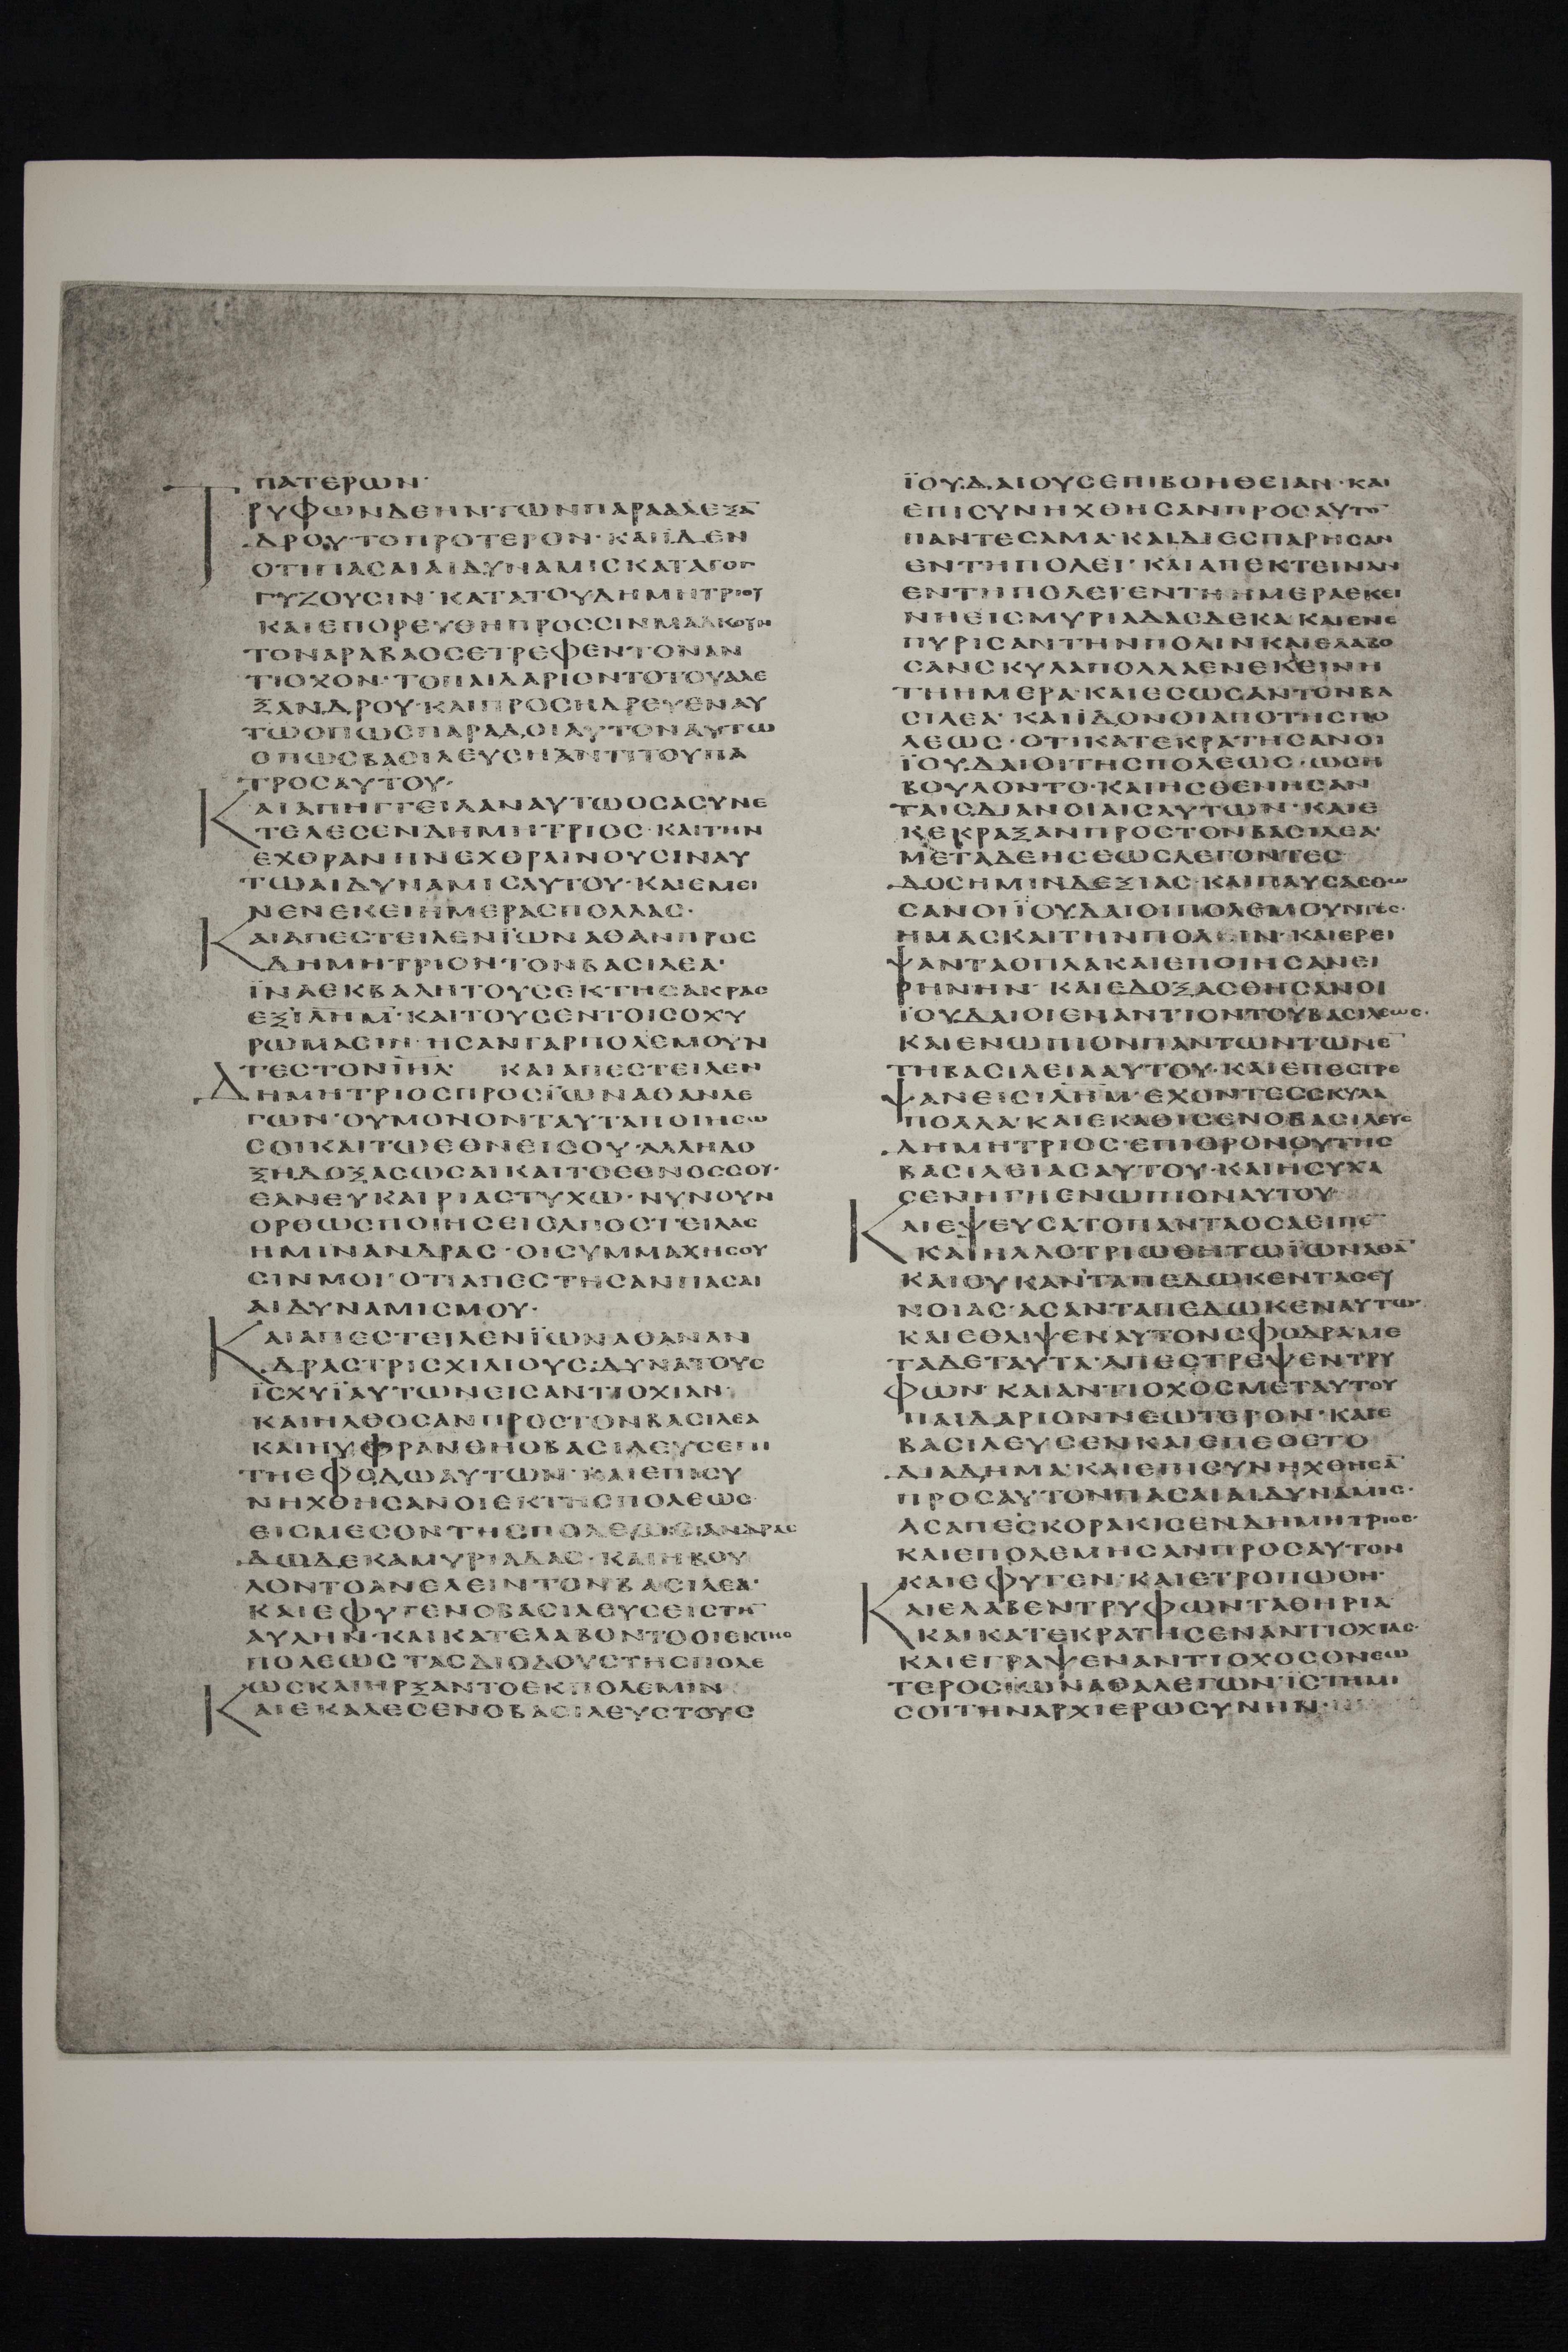 ΠΑΤΕΡΩΝ·
ΤΡΥΦΩΝΔΕΗΝΤΩΝΠΑΡΑΑΛΕΞΑ̅
ΔΡΟΥ·ΤΟΠΡΟΤΕΡΟΝ·ΚΑΙΪΔΕΝ
ΟΤΙΠΑΣΑΙΑΙΔΥΝΑΜΙΣΚΑΤΑΓΟΓ
ΓΥΖΟΥΣΙΝ·ΚΑΤΑΤΟΥΔΗΜΗΤΡΙΟΥ
ΚΑΙΕΠΟΡΕΥΘΗΠΡΟΣΣΙΝΜΑΛΚΟΥΗ
ΤΟΝΑΡΑΒΑΟΣΕΤΡΕΦΕΝΤΟΝΑΝ
ΤΙΟΧΟΝ·ΤΟΠΑΙΔΑΡΙΟΝΤΟΤΟΥΑΛΕ
ΞΑΝΔΡΟΥ·ΚΑΙΠΡΟΣΗΔΡΕΥΕΝΑΥ
ΤΩΟΠΩΣΠΑΡΑΔΟΙΑΥΤΟΝΑΥΤΩ
ΟΠΩΣΒΑΣΙΛΕΥΣΗΑΝΤΙΤΟΥΠΑ
ΤΡΟΣΑΥΤΟΥ·
ΚΑΙΑΠΗΓΓΕΙΛΑΝΑΥΤΩΟΣΑΣΥΝΕ
ΤΕΛΕΣΕΝΔΗΜΗΤΡΙΟΣ·ΚΑΙΤΗΝ
ΕΧΘΡΑΝΗΝΕΧΘΡΑΙΝΟΥΣΙΝΑΥ
ΤΩΑΙΔΥΝΑΜΙΣΑΥΤΟΥ·ΚΑΙΕΜΕΙ
ΝΕΝΕΚΕΙΗΜΕΡΑΣΠΟΛΛΑΣ·
ΚΑΙΑΠΕΣΤΕΙΛΕΝΪΩΝΑΘΑΝΠΡΟΣ
ΔΗΜΗΤΡΙΟΝΤΟΝΒΑΣΙΛΕΑ·
ΪΝΑΕΚΒΑΛΗΤΟΥΣΕΚΤΗΣΑΚΡΑΣ
ΕΞΙΛΗΜ̅·ΚΑΙΤΟΥΣΕΝΤΟΙΣΟΧΥ
ΡΩΜΑΣΙΝ·ΗΣΑΝΓΑΡΠΟΛΕΜΟΥΝ
ΤΕΣΤΟΝΙ̅Η̅Λ̅ ΚΑΙΑΠΕΣΤΕΙΛΕΝ
ΔΗΜΗΤΡΙΟΣΠΡΟΣΪΩΝΑΘΑΝΛΕ
ΓΩΝ·ΟΥΜΟΝΟΝΤΑΥΤΑΠΟΙΗΣΩ
ΣΟΙΚΑΙΤΩΕΘΝΕΙΣΟΥ·ΑΛΛΗΔΟ
ΞΗΔΟΞΑΣΩΣΑΙΚΑΙΤΟΕΘΝΟΣΣΟΥ·
ΕΑΝΕΥΚΑΙΡΙΑΣΤΥΧΩ·ΝΥΝΟΥΝ
ΟΡΘΩΣΠΟΙΗΣΕΙΣΑΠΟΣΤΕΙΛΑΣ
ΗΜΙΝΑΝΔΡΑΣ·ΟΙΣΥΜΜΑΧΗΣΟΥ
ΣΙΝΜΟΙ·ΟΤΙΑΠΕΣΤΗΣΑΝΠΑΣΑΙ
ΑΙΔΥΝΑΜΙΣΜΟΥ·
ΚΑΙΑΠΕΣΤΕΙΛΕΝΪΩΝΑΘΑΝΑΝ
ΔΡΑΣΤΡΙΣΧΙΛΙΟΥΣ·ΔΥΝΑΤΟΥΣ
ΪΣΧΥΪΑΥΤΩΝΕΙΣΑΝΤΙΟΧΙΑΝ·
ΚΑΙΗΛΘΟΣΑΝΠΡΟΣΤΟΝΒΑΣΙΛΕΑ
ΚΑΙΗΥΦΡΑΝΘΗΟΒΑΣΙΛΕΥΣΕΠΙ
ΤΗΕΦΟΔΩΑΥΤΩΝ·ΚΑΙΕΠΙΣΥ
ΝΗΧΘΗΣΑΝΟΙΕΚΤΗΣΠΟΛΕΩΣ
ΕΙΣΜΕΣΟΝΤΗΣΠΟΛΕΩΣΑΝΔΡΑΣ
ΔΩΔΕΚΑΜΥΡΙΑΔΑΣ·ΚΑΙΗΒΟΥ
ΛΟΝΤΟΑΝΕΛΕΙΝΤΟΝΒΑΣΙΛΕΑ·
ΚΑΙΕΦΥΓΕΝΟΒΑΣΙΛΕΥΣΕΙΣΤΗ̅
ΑΥΛΗΝ·ΚΑΙΚΑΤΕΛΑΒΟΝΤΟΟΙΕΚΤΗΣ
ΠΟΛΕΩΣΤΑΣΔΙΟΔΟΥΣΤΗΣΠΟΛΕ
ΩΣΚΑΙΗΡΞΑΝΤΟΕΚΠΟΛΕΜΙΝ
ΚΑΙΕΚΑΛΕΣΕΝΟΒΑΣΙΛΕΥΣΤΟΥΣ
ΪΟΥΔΑΙΟΥΣΕΠΙΒΟΗΘΕΙΑΝ·ΚΑΙ
ΕΠΙΣΥΝΗΧΘΗΣΑΝΠΡΟΣΑΥΤΟ̅
ΠΑΝΤΕΣΑΜΑ·ΚΑΙΔΙΕΣΠΑΡΗΣΑΝ
ΕΝΤΗΠΟΛΕΙ·ΚΑΙΑΠΕΚΤΕΙΝΑΝ
ΕΝΤΗΠΟΛΕΙ·ΕΝΤΗΗΜΕΡΑΕΚΕΙ
ΝΗΕΙΣΜΥΡΙΑΔΑΣΔΕΚΑ·ΚΑΙΕΝΕ
ΠΥΡΙΣΑΝΤΗΝΠΟΛΙΝΚΑΙΕΛΑΒΟ
ΣΑΝΣΚΥΛΑΠΟΛΛΑΕΝΕΚΕΙΝΗ
ΤΗΗΜΕΡΑ·ΚΑΙΕΣΩΣΑΝΤΟΝΒΑ
ΣΙΛΕΑ·ΚΑΙΪΔΟΝΟΙΑΠΟΤΗΣΠΟ
ΛΕΩΣ·ΟΤΙΚΑΤΕΚΡΑΤΗΣΑΝΟΙ
ΪΟΥΔΑΙΟΙΤΗΣΠΟΛΕΩΣ·ΩΣΗ
ΒΟΥΛΟΝΤΟ·ΚΑΙΗΣΘΕΝΗΣΑΝ
ΤΑΙΣΔΙΑΝΟΙΑΙΣΑΥΤΩΝ·ΚΑΙΕ
ΚΕΚΡΑΞΑΝΠΡΟΣΤΟΝΒΑΣΙΛΕΑ·
ΜΕΤΑΔΕΗΣΕΩΣΛΕΓΟΝΤΕΣ
ΔΟΣΗΜΙΝΔΕΞΙΑΣ·ΚΑΙΠΑΥΣΑΣΘΩ
ΣΑΝΟΙΪΟΥΔΑΙΟΙΠΟΛΕΜΟΥΝΤΕΣ·
ΗΜΑΣΚΑΙΤΗΝΠΟΛΕΙΝ·ΚΑΙΕΡΕΙ
ΨΑΝΤΑΟΠΛΑΚΑΙΕΠΟΙΗΣΑΝΕΙ
ΡΗΝΗΝ·ΚΑΙΕΔΟΞΑΣΘΗΣΑΝΟΙ
ΪΟΥΔΑΙΟΙΕΝΑΝΤΙΟΝΤΟΥΒΑΣΙΛΕΩΣ·
ΚΑΙΕΝΩΠΙΟΝΠΑΝΤΩΝΤΩΝΕ̅
ΤΗΒΑΣΙΛΕΙΑΑΥΤΟΥ·ΚΑΙΕΠΕΣΤΡΕ
ΨΑΝΕΙΣΙΛΗΜ̅ΕΧΟΝΤΕΣΣΚΥΛΑ
ΠΟΛΛΑ·ΚΑΙΕΚΑΘΙΣΕΝΟΒΑΣΙΛΕΥΣ
ΔΗΜΗΤΡΙΟΣ·ΕΠΙΘΡΟΝΟΥΤΗΣ
ΒΑΣΙΛΕΙΑΣΑΥΤΟΥ·ΚΑΙΗΣΥΧΑ
ΣΕΝΗΓΗΕΝΩΠΙΟΝΑΥΤΟΥ
ΚΑΙΕΨΕΥΣΑΤΟΠΑΝΤΑΟΣΑΕΙΠΕ̅
ΚΑΙΗΛΛΟΤΡΙΩΘΗΤΩΪΩΝΑΘΑ̅
ΚΑΙΟΥΚΑΝΤΑΠΕΔΩΚΕΝΤΑΣΕΥ
ΝΟΙΑΣ·ΑΣΑΝΤΑΠΕΔΩΚΕΝΑΥΤΩ·
ΚΑΙΕΘΛΙΨΕΝΑΥΤΟΝΣΦΟΔΡΑΜΕ
ΤΑΔΕΤΑΥΤΑ·ΑΠΕΣΤΡΕΨΕΝΤΡΥ
ΦΩΝ·ΚΑΙΑΝΤΙΟΧΟΣΜΕΤΑΥΤΟΥ
ΠΑΙΔΑΡΙΟΝΝΕΩΤΕΡΟΝ·ΚΑΙΕ
ΒΑΣΙΛΕΥΣΕΝΚΑΙΕΠΕΘΕΤΟ
ΔΙΑΔΗΜΑ·ΚΑΙΕΠΙΣΥΝΗΧΘΗΣΑ̅
ΠΡΟΣΑΥΤΟΝΠΑΣΑΙΑΙΔΥΝΑΜΙΣ·
ΑΣΑΠΕΣΚΟΡΑΚΙΣΕΝΔΗΜΗΤΡΙΟΣ·
ΚΑΙΕΠΟΛΕΜΗΣΑΝΠΡΟΣΑΥΤΟΝ
ΚΑΙΕΦΥΓΕΝ·ΚΑΙΕΤΡΟΠΩΘΗ·
ΚΑΙΕΛΑΒΕΝΤΡΥΦΩΝΤΑΘΗΡΙΑ
ΚΑΙΚΑΤΕΚΡΑΤΗΣΕΝΑΝΤΙΟΧΙΑΣ·
ΚΑΙΕΓΡΑΨΕΝΑΝΤΙΟΧΟΣΟΝΕΩ
ΤΕΡΟΣΙΩΝΑΘΑΛΕΓΩΝ·ΪΣΤΗΜΙ
ΣΟΙΤΗΝΑΡΧΙΕΡΩΣΥΝΗΝ·